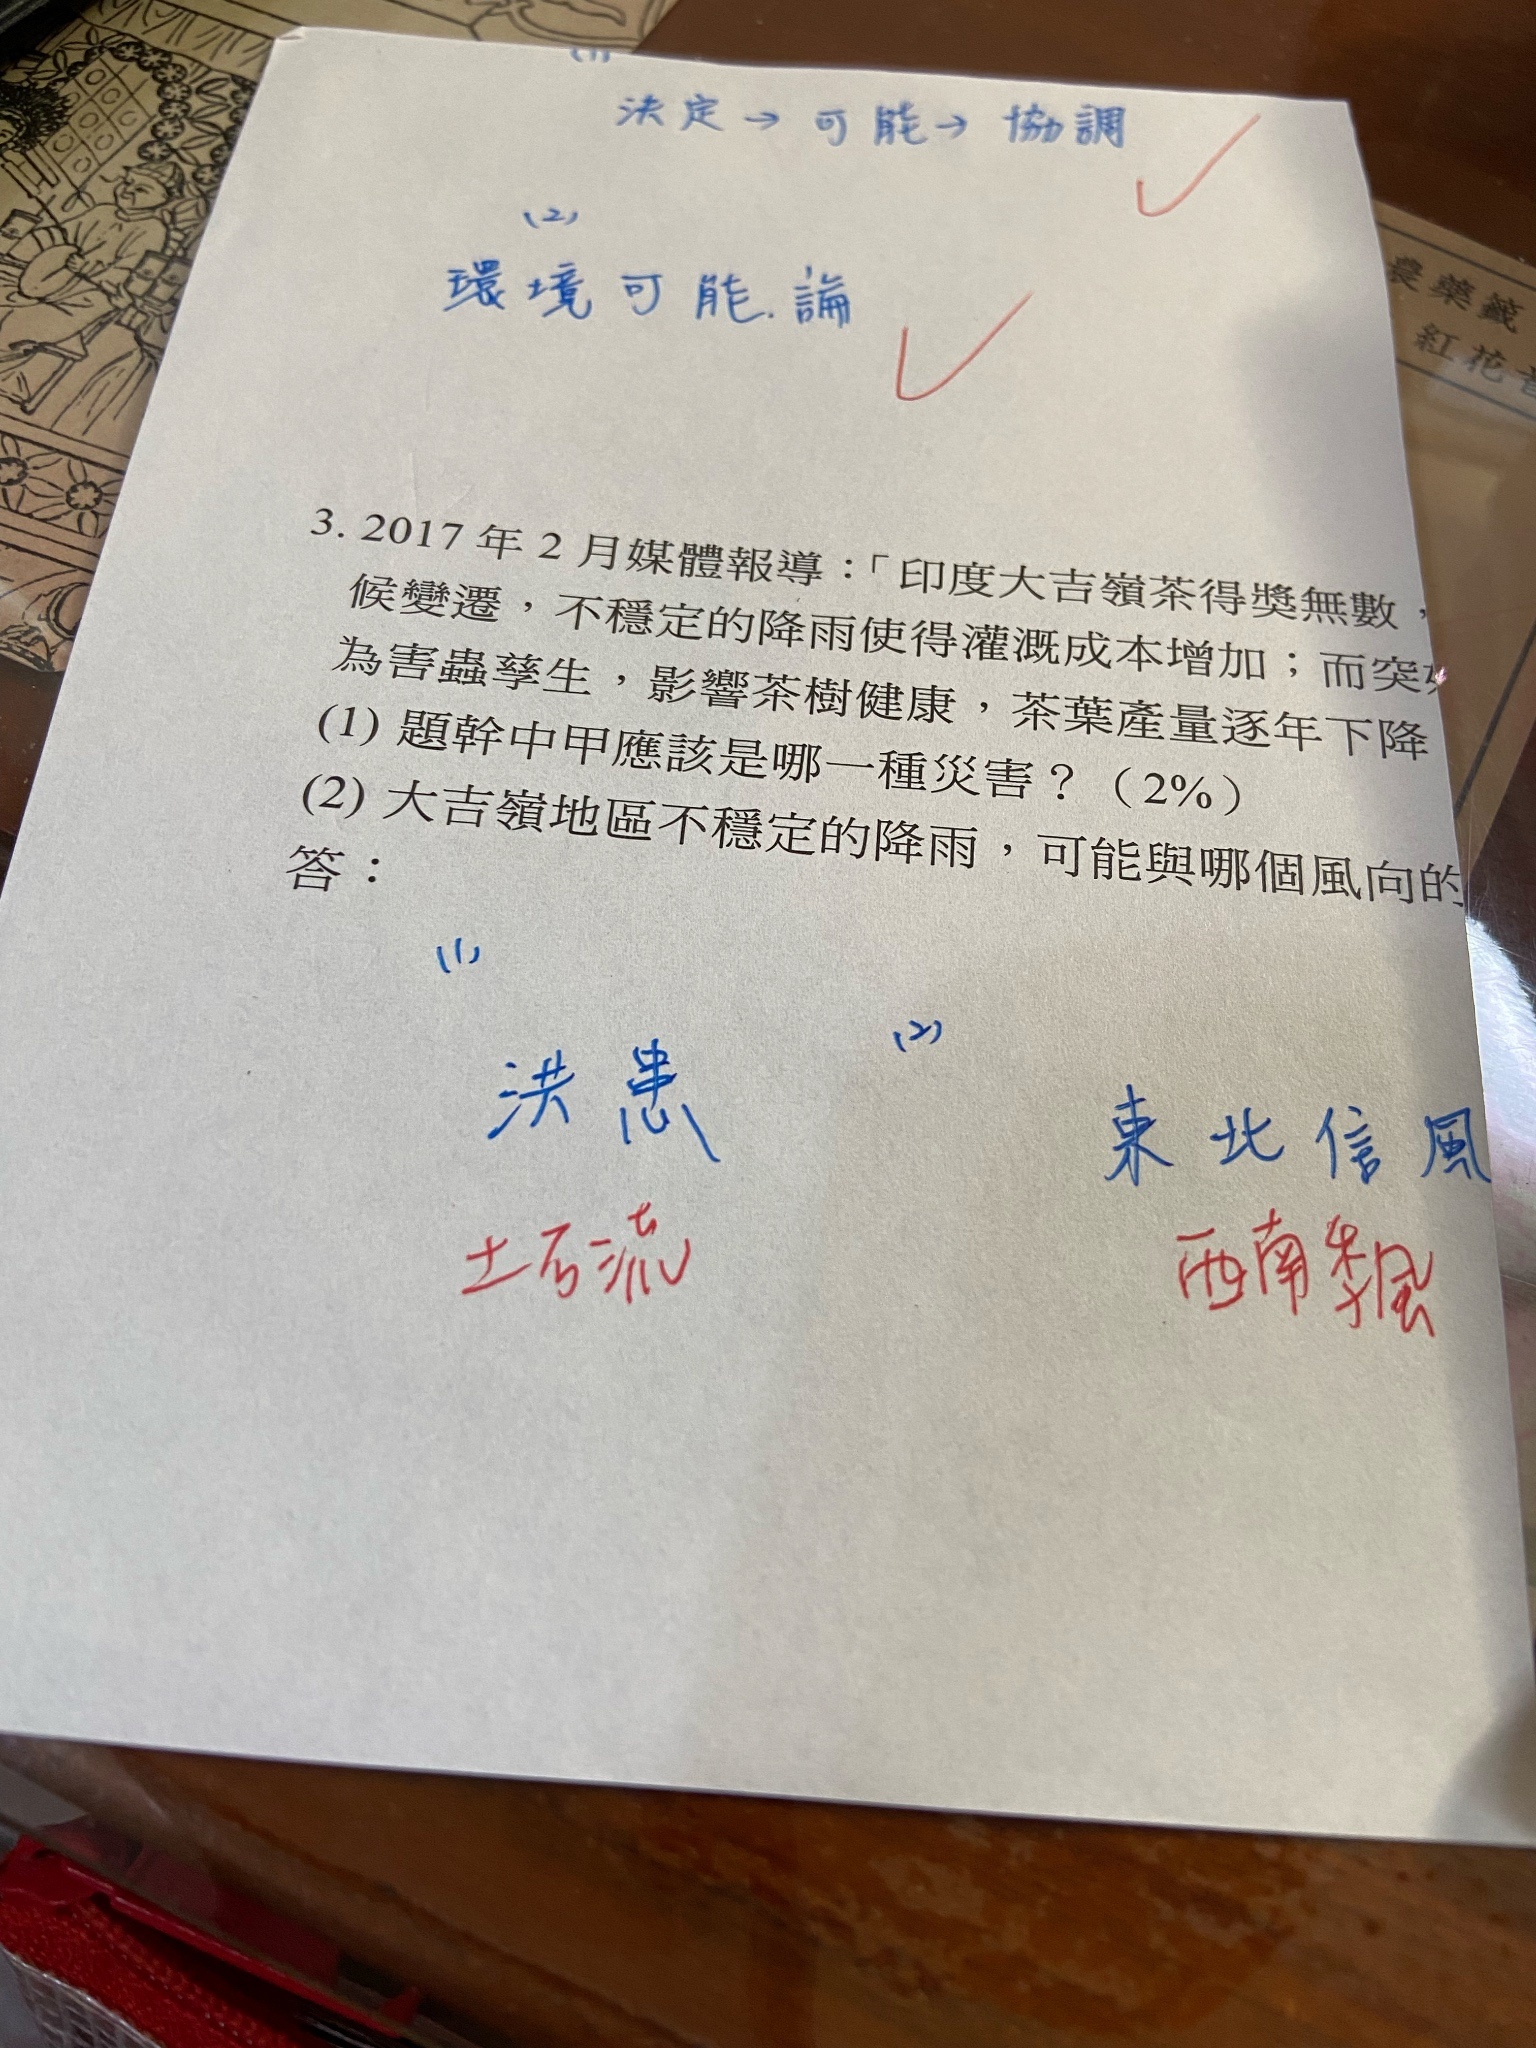 (1)
決定→可能→協調
(2)
環境可能論
3. 2017 年 2 月媒體報導：「印度大吉嶺茶得獎無數，
候變遷，不穩定的降雨使得灌溉成本增加；而突如
為害蟲孳生，影響茶樹健康，茶葉產量逐年下降
(1) 題幹中甲應該是哪一種災害？（2%）
(2) 大吉嶺地區不穩定的降雨，可能與哪個風向的
答：
(1)
(2)
洪患
東北信風
土石流
西南季風
農藥籤
紅花